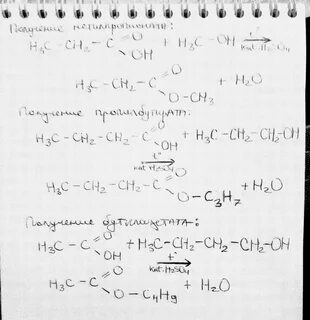 Получение метилпропионата:
H₃C-CH₂-C=O OH + H₃C-OH t° Kat. H₂SO₄
H₃C-CH₂-C=O O-CH₃ + H₂O
Получение пропилбутирата:
H₃C-CH₂-CH₂-C=O OH + H₃C-CH₂-CH₂-OH
t° Kat. H₂SO₄
H₃C-CH₂-CH₂-C=O O-C₃H₇ + H₂O
Получение бутилацетата:
H₃C-C=O OH + H₃C-CH₂-CH₂-CH₂-OH
t° Kat. H₂SO₄
H₃C-C=O O-C₄H₉ + H₂O